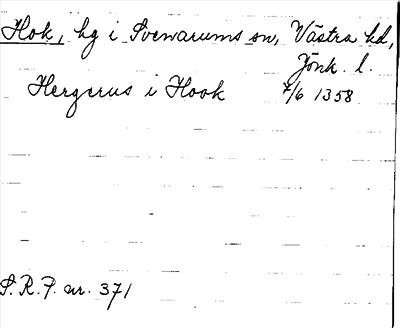 Hok, hg i Svenarums sn, Västra hd,
Jönk. l.
Hergerus i Hook 7/6 1358
S.R.P. nr. 371